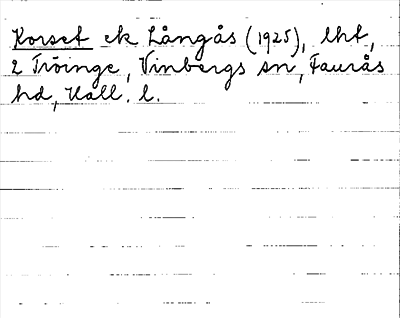 Korset ek Långås (1925), lht,
2 Tröinge, Vinbergs sn, Faurås
hd, Hall. l.